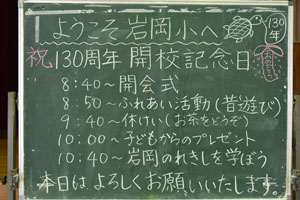 ようこそ岩岡小へ
130年
祝130周年開校記念日
8:40～開会式
8:50～ふれあい活動(昔遊び)
9:40～休けい(お茶をどうぞ)
10:00～子どもからのプレゼント
10:40～岩岡のれきしを学ぼう
本日はよろしくお願いいたします。